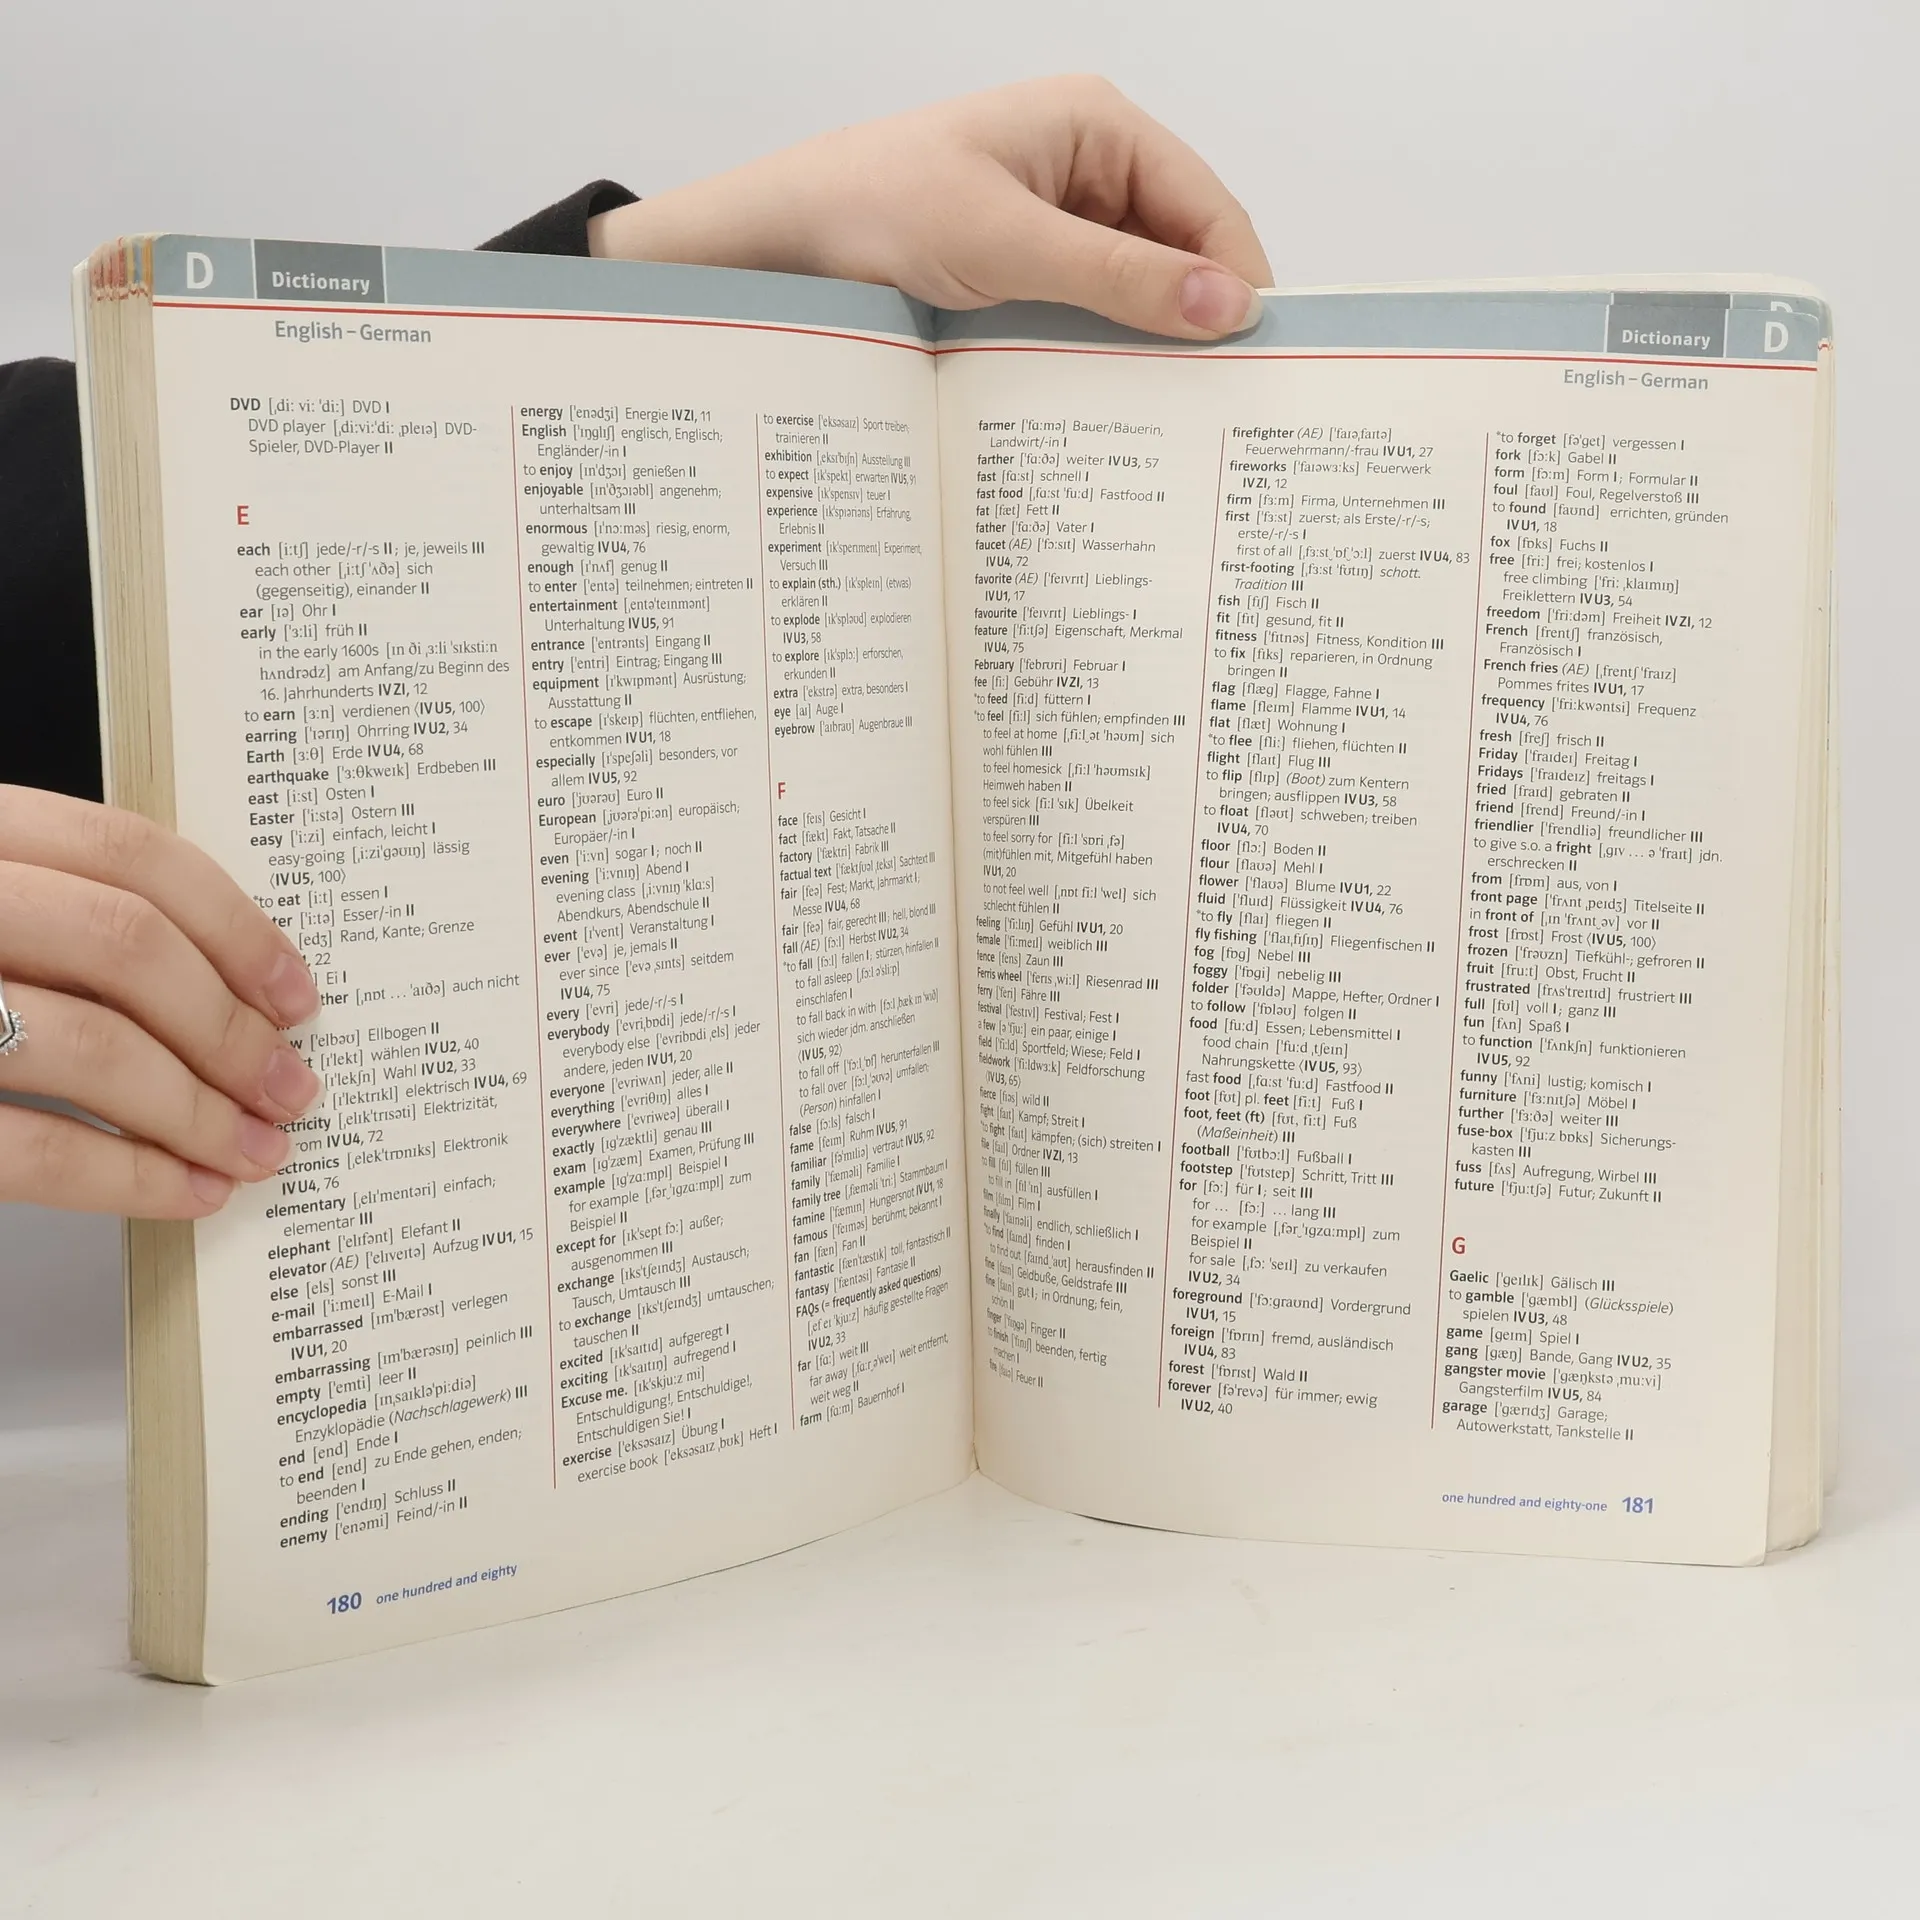 D Dictionary
English – German
DVD [ˌdiː viː ˈdiː] DVD I
DVD player [ˌdiːviːˈdiː ˌpleɪə] DVD-
Spieler, DVD-Player II
E
each [iːtʃ] jede/-r/-s II; je, jeweils III
each other [ˌiːtʃ ˈʌðə] sich
(gegenseitig), einander II
ear [ɪə] Ohr I
early [ˈɜːli] früh II
in the early 1600s [ɪn ði ˌɜːli ˈsɪkstiːn
hʌndrədz] am Anfang/zu Beginn des
16. Jahrhunderts IV ZI, 12
to earn [ɜːn] verdienen ⟨IV U5, 100⟩
earring [ˈɪərɪŋ] Ohrring IV U2, 34
Earth [ɜːθ] Erde IV U4, 68
earthquake [ˈɜːθkweɪk] Erdbeben III
east [iːst] Osten I
Easter [ˈiːstə] Ostern III
easy [ˈiːzi] einfach, leicht I
easy-going [ˌiːziˈgəʊɪŋ] lässig
⟨IV U5, 100⟩
*to eat [iːt] essen I
[ˈiːtə] Esser/-in II
[edʒ] Rand, Kante; Grenze
22
Ei I
[ˌnɒt … ˈaɪðə] auch nicht
[ˈelbəʊ] Ellbogen II
[ɪˈlekt] wählen IV U2, 40
[ɪˈlekʃn] Wahl IV U2, 33
[ɪˈlektrɪkl] elektrisch IV U4, 69
[ˌelɪkˈtrɪsəti] Elektrizität,
IV U4, 72
[ˌelekˈtrɒnɪks] Elektronik
IV U4, 76
elementary [ˌelɪˈmentəri] einfach;
elementar III
elephant [ˈelɪfənt] Elefant II
elevator (AE) [ˈelɪveɪtə] Aufzug IV U1, 15
else [els] sonst III
e-mail [ˈiːmeɪl] E-Mail I
embarrassed [ɪmˈbærəst] verlegen
IV U1, 20
embarrassing [ɪmˈbærəsɪŋ] peinlich III
empty [ˈemti] leer II
encyclopedia [ɪnˌsaɪkləˈpiːdiə]
Enzyklopädie (Nachschlagewerk) III
end [end] Ende I
to end [end] zu Ende gehen, enden;
beenden I
ending [ˈendɪŋ] Schluss II
enemy [ˈenəmi] Feind/-in II
energy [ˈenədʒi] Energie IV ZI, 11
English [ˈɪŋglɪʃ] englisch, Englisch;
Engländer/-in I
to enjoy [ɪnˈdʒɔɪ] genießen II
enjoyable [ɪnˈdʒɔɪəbl] angenehm;
unterhaltsam III
enormous [ɪˈnɔːməs] riesig, enorm,
gewaltig IV U4, 76
enough [ɪˈnʌf] genug II
to enter [ˈentə] teilnehmen; eintreten II
entertainment [ˌentəˈteɪnmənt]
Unterhaltung IV U5, 91
entrance [ˈentrənts] Eingang II
entry [ˈentri] Eintrag; Eingang III
equipment [ɪˈkwɪpmənt] Ausrüstung;
Ausstattung II
to escape [ɪˈskeɪp] flüchten, entfliehen,
entkommen IV U1, 18
especially [ɪˈspeʃəli] besonders, vor
allem IV U5, 92
euro [ˈjʊərəʊ] Euro II
European [ˌjʊərəˈpiːən] europäisch;
Europäer/-in I
even [ˈiːvn] sogar I; noch II
evening [ˈiːvnɪŋ] Abend I
evening class [ˌiːvnɪŋ ˈklɑːs]
Abendkurs, Abendschule II
event [ɪˈvent] Veranstaltung I
ever [ˈevə] je, jemals II
ever since [ˈevə ˌsɪnts] seitdem
IV U4, 75
every [ˈevri] jede/-r/-s I
everybody [ˈevriˌbɒdi] jede/-r/-s I
everybody else [ˈevribɒdi ˌels] jeder
andere, jeden IV U1, 20
everyone [ˈevriwʌn] jeder, alle II
everything [ˈevriθɪŋ] alles I
everywhere [ˈevriweə] überall I
exactly [ɪgˈzæktli] genau III
exam [ɪgˈzæm] Examen, Prüfung III
example [ɪgˈzɑːmpl] Beispiel I
for example [ˌfər ˌɪgzɑːmpl] zum
Beispiel II
except for [ɪkˈsept fɔː] außer;
ausgenommen III
exchange [ɪksˈtʃeɪndʒ] Austausch;
Tausch, Umtausch III
to exchange [ɪksˈtʃeɪndʒ] umtauschen;
tauschen II
excited [ɪkˈsaɪtɪd] aufgeregt I
exciting [ɪkˈsaɪtɪŋ] aufregend I
Excuse me. [ɪkˈskjuːz mi]
Entschuldigung!, Entschuldige!,
Entschuldigen Sie! I
exercise [ˈeksəsaɪz] Übung I
exercise book [ˈeksəsaɪz ˌbʊk] Heft I
to exercise [ˈeksəsaɪz] Sport treiben,
trainieren II
exhibition [ˌeksɪˈbɪʃn] Ausstellung III
to expect [ɪkˈspekt] erwarten IV U5, 91
expensive [ɪkˈspensɪv] teuer I
experience [ɪkˈspɪəriəns] Erfahrung,
Erlebnis II
experiment [ɪkˈsperɪmənt] Experiment,
Versuch III
to explain (sth.) [ɪkˈspleɪn] (etwas)
erklären II
to explode [ɪkˈspləʊd] explodieren
IV U3, 58
to explore [ɪkˈsplɔː] erforschen,
erkunden II
extra [ˈekstrə] extra, besonders I
eye [aɪ] Auge I
eyebrow [ˈaɪbraʊ] Augenbraue III
F
face [feɪs] Gesicht I
fact [fækt] Fakt, Tatsache II
factory [ˈfæktri] Fabrik III
factual text [ˈfæktʃʊəl ˌtekst] Sachtext III
fair [feə] Fest; Markt, Jahrmarkt I;
Messe IV U4, 68
fair [feə] fair, gerecht III; hell, blond III
fall (AE) [fɔːl] Herbst IV U2, 34
*to fall [fɔːl] fallen I; stürzen, hinfallen II
to fall asleep [ˌfɔːl əˈsliːp]
einschlafen I
to fall back in with [fɔːl ˌbæk ɪn ˈwɪð]
sich wieder jdm. anschließen
⟨IV U5, 92⟩
to fall off [ˈfɔːl ˌɒf] herunterfallen III
to fall over [fɔːl ˌəʊvə] umfallen;
(Person) hinfallen I
false [fɔːls] falsch I
fame [feɪm] Ruhm IV U5, 91
familiar [fəˈmɪliə] vertraut IV U5, 92
family [ˈfæməli] Familie I
family tree [ˌfæməli ˈtriː] Stammbaum I
famine [ˈfæmɪn] Hungersnot IV U1, 18
famous [ˈfeɪməs] berühmt, bekannt I
fan [fæn] Fan II
fantastic [fænˈtæstɪk] toll, fantastisch II
fantasy [ˈfæntəsi] Fantasie II
FAQs (= frequently asked questions)
[ˌef eɪ ˈkjuːz] häufig gestellte Fragen
IV U2, 33
far [fɑː] weit III
far away [ˌfɑːr əˈweɪ] weit entfernt,
weit weg II
farm [fɑːm] Bauernhof I
180 one hundred and eighty
Dictionary D
D
English – German
farmer [ˈfɑːmə] Bauer/Bäuerin,
Landwirt/-in I
farther [ˈfɑːðə] weiter IV U3, 57
fast [fɑːst] schnell I
fast food [ˌfɑːst ˈfuːd] Fastfood II
fat [fæt] Fett II
father [ˈfɑːðə] Vater I
faucet (AE) [ˈfɔːsɪt] Wasserhahn
IV U4, 72
favorite (AE) [ˈfeɪvrɪt] Lieblings-
IV U1, 17
favourite [ˈfeɪvrɪt] Lieblings- I
feature [ˈfiːtʃə] Eigenschaft, Merkmal
IV U4, 75
February [ˈfebruri] Februar I
fee [fiː] Gebühr IV ZI, 13
*to feed [fiːd] füttern I
*to feel [fiːl] sich fühlen; empfinden III
to feel at home [ˌfiːl ˌət ˈhəʊm] sich
wohl fühlen III
to feel homesick [ˌfiːl ˈhəʊmsɪk]
Heimweh haben II
to feel sick [fiːl ˈsɪk] Übelkeit
verspüren III
to feel sorry for [fiːl ˈsɒri ˌfə]
(mit)fühlen mit, Mitgefühl haben
IV U1, 20
to not feel well [ˌnɒt fiːl ˈwel] sich
schlecht fühlen II
feeling [ˈfiːlɪŋ] Gefühl IV U1, 20
female [ˈfiːmeɪl] weiblich III
fence [fens] Zaun III
Ferris wheel [ˈferɪs ˌwiːl] Riesenrad III
ferry [ˈferi] Fähre III
festival [ˈfestɪvl] Festival; Fest I
a few [ə ˈfjuː] ein paar, einige I
field [fiːld] Sportfeld; Wiese; Feld I
fieldwork [ˈfiːldwɜːk] Feldforschung
⟨IV U3, 65⟩
fierce [fɪəs] wild II
fight [faɪt] Kampf; Streit I
*to fight [faɪt] kämpfen; (sich) streiten I
file [faɪl] Ordner IV ZI, 13
to fill [fɪl] füllen III
to fill in [fɪl ˈɪn] ausfüllen I
film [fɪlm] Film I
finally [ˈfaɪnəli] endlich, schließlich I
*to find [faɪnd] finden I
to find out [faɪnd ˌaʊt] herausfinden II
fine [faɪn] Geldbuße, Geldstrafe III
fine [faɪn] gut I; in Ordnung; fein,
schön II
finger [ˈfɪŋgə] Finger II
to finish [ˈfɪnɪʃ] beenden, fertig
machen I
fire [faɪə] Feuer II
firefighter (AE) [ˈfaɪəˌfaɪtə]
Feuerwehrmann/-frau IV U1, 27
fireworks [ˈfaɪəwɜːks] Feuerwerk
IV ZI, 12
firm [fɜːm] Firma, Unternehmen III
first [ˈfɜːst] zuerst; als Erste/-r/-s;
erste/-r/-s I
first of all [ˌfɜːst ˌɒf ˈɔːl] zuerst IV U4, 83
first-footing [ˌfɜːst ˈfʊtɪŋ] schott.
Tradition III
fish [fɪʃ] Fisch II
fit [fɪt] gesund, fit II
fitness [ˈfɪtnəs] Fitness, Kondition III
to fix [fɪks] reparieren, in Ordnung
bringen II
flag [flæg] Flagge, Fahne I
flame [fleɪm] Flamme IV U1, 14
flat [flæt] Wohnung I
*to flee [fliː] fliehen, flüchten II
flight [flaɪt] Flug III
to flip [flɪp] (Boot) zum Kentern
bringen; ausflippen IV U3, 58
to float [fləʊt] schweben; treiben
IV U4, 70
floor [flɔː] Boden II
flour [flaʊə] Mehl I
flower [ˈflaʊə] Blume IV U1, 22
fluid [ˈfluɪd] Flüssigkeit IV U4, 76
*to fly [flaɪ] fliegen II
fly fishing [ˈflaɪˌfɪʃɪŋ] Fliegenfischen II
fog [fɒg] Nebel III
foggy [ˈfɒgi] nebelig III
folder [ˈfəʊldə] Mappe, Hefter, Ordner I
to follow [ˈfɒləʊ] folgen II
food [fuːd] Essen; Lebensmittel I
food chain [ˈfuːd ˌtʃeɪn]
Nahrungskette ⟨IV U5, 93⟩
fast food [ˌfɑːst ˈfuːd] Fastfood II
foot [fʊt] pl. feet [fiːt] Fuß I
foot, feet (ft) [fʊt, fiːt] Fuß
(Maßeinheit) III
football [ˈfʊtbɔːl] Fußball I
footstep [ˈfʊtstep] Schritt, Tritt III
for [fɔː] für I; seit III
for … [fɔː] … lang III
for example [ˌfər ˌɪgzɑːmpl] zum
Beispiel II
for sale [ˌfɔː ˈseɪl] zu verkaufen
IV U2, 34
foreground [ˈfɔːgraʊnd] Vordergrund
IV U1, 15
foreign [ˈfɒrɪn] fremd, ausländisch
IV U4, 83
forest [ˈfɒrɪst] Wald II
forever [fəˈrevə] für immer; ewig
IV U2, 40
*to forget [fəˈget] vergessen I
fork [fɔːk] Gabel II
form [fɔːm] Form I; Formular II
foul [faʊl] Foul, Regelverstoß III
to found [faʊnd] errichten, gründen
IV U1, 18
fox [fɒks] Fuchs II
free [friː] frei; kostenlos I
free climbing [ˈfriː ˌklaɪmɪŋ]
Freiklettern IV U3, 54
freedom [ˈfriːdəm] Freiheit IV ZI, 12
French [frentʃ] französisch,
Französisch I
French fries (AE) [ˌfrentʃ ˈfraɪz]
Pommes frites IV U1, 17
frequency [ˈfriːkwəntsi] Frequenz
IV U4, 76
fresh [freʃ] frisch II
Friday [ˈfraɪdeɪ] Freitag I
Fridays [ˈfraɪdeɪz] freitags I
fried [fraɪd] gebraten II
friend [frend] Freund/-in I
friendlier [ˈfrendliə] freundlicher III
to give s.o. a fright [ˌgɪv … ə ˈfraɪt] jdn.
erschrecken II
from [frɒm] aus, von I
front page [ˌfrʌnt ˌpeɪdʒ] Titelseite II
in front of [ˌɪn ˈfrʌnt ˌəv] vor II
frost [frɒst] Frost ⟨IV U5, 100⟩
frozen [ˈfrəʊzn] Tiefkühl-; gefroren II
fruit [fruːt] Obst, Frucht II
frustrated [frʌsˈtreɪtɪd] frustriert III
full [fʊl] voll I; ganz III
fun [fʌn] Spaß I
to function [ˈfʌnkʃn] funktionieren
IV U5, 92
funny [ˈfʌni] lustig; komisch I
furniture [ˈfɜːnɪtʃə] Möbel I
further [ˈfɜːðə] weiter III
fuse-box [ˈfjuːz bɒks] Sicherungs-
kasten III
fuss [fʌs] Aufregung, Wirbel III
future [ˈfjuːtʃə] Futur; Zukunft II
G
Gaelic [ˈgeɪlɪk] Gälisch III
to gamble [ˈgæmbl] (Glücksspiele)
spielen IV U3, 48
game [geɪm] Spiel I
gang [gæŋ] Bande, Gang IV U2, 35
gangster movie [ˈgæŋkstə ˌmuːvi]
Gangsterfilm IV U5, 84
garage [ˈgærɪdʒ] Garage;
Autowerkstatt, Tankstelle II
one hundred and eighty-one 181